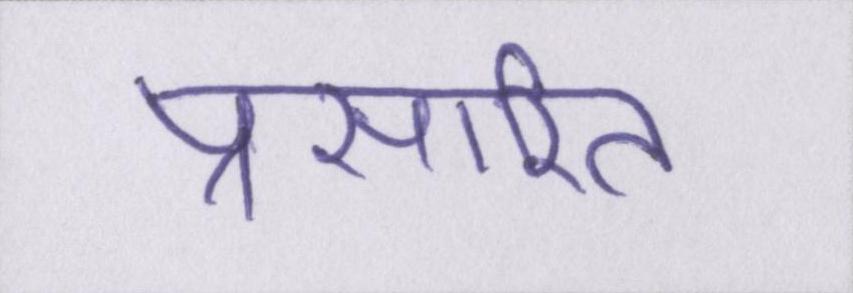 प्रसारित